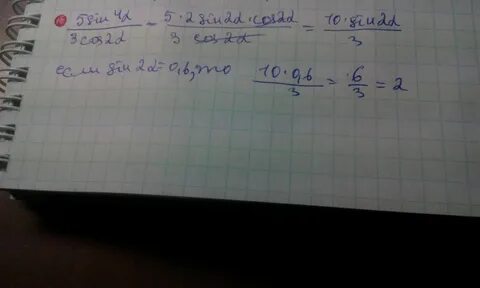 5sin4α/3cos2α = 5·2sin2α·cos2α/3cos2α = 10·sin2α/3
если sin2α=0,6, то 10·0,6/3 = 6/3 = 2